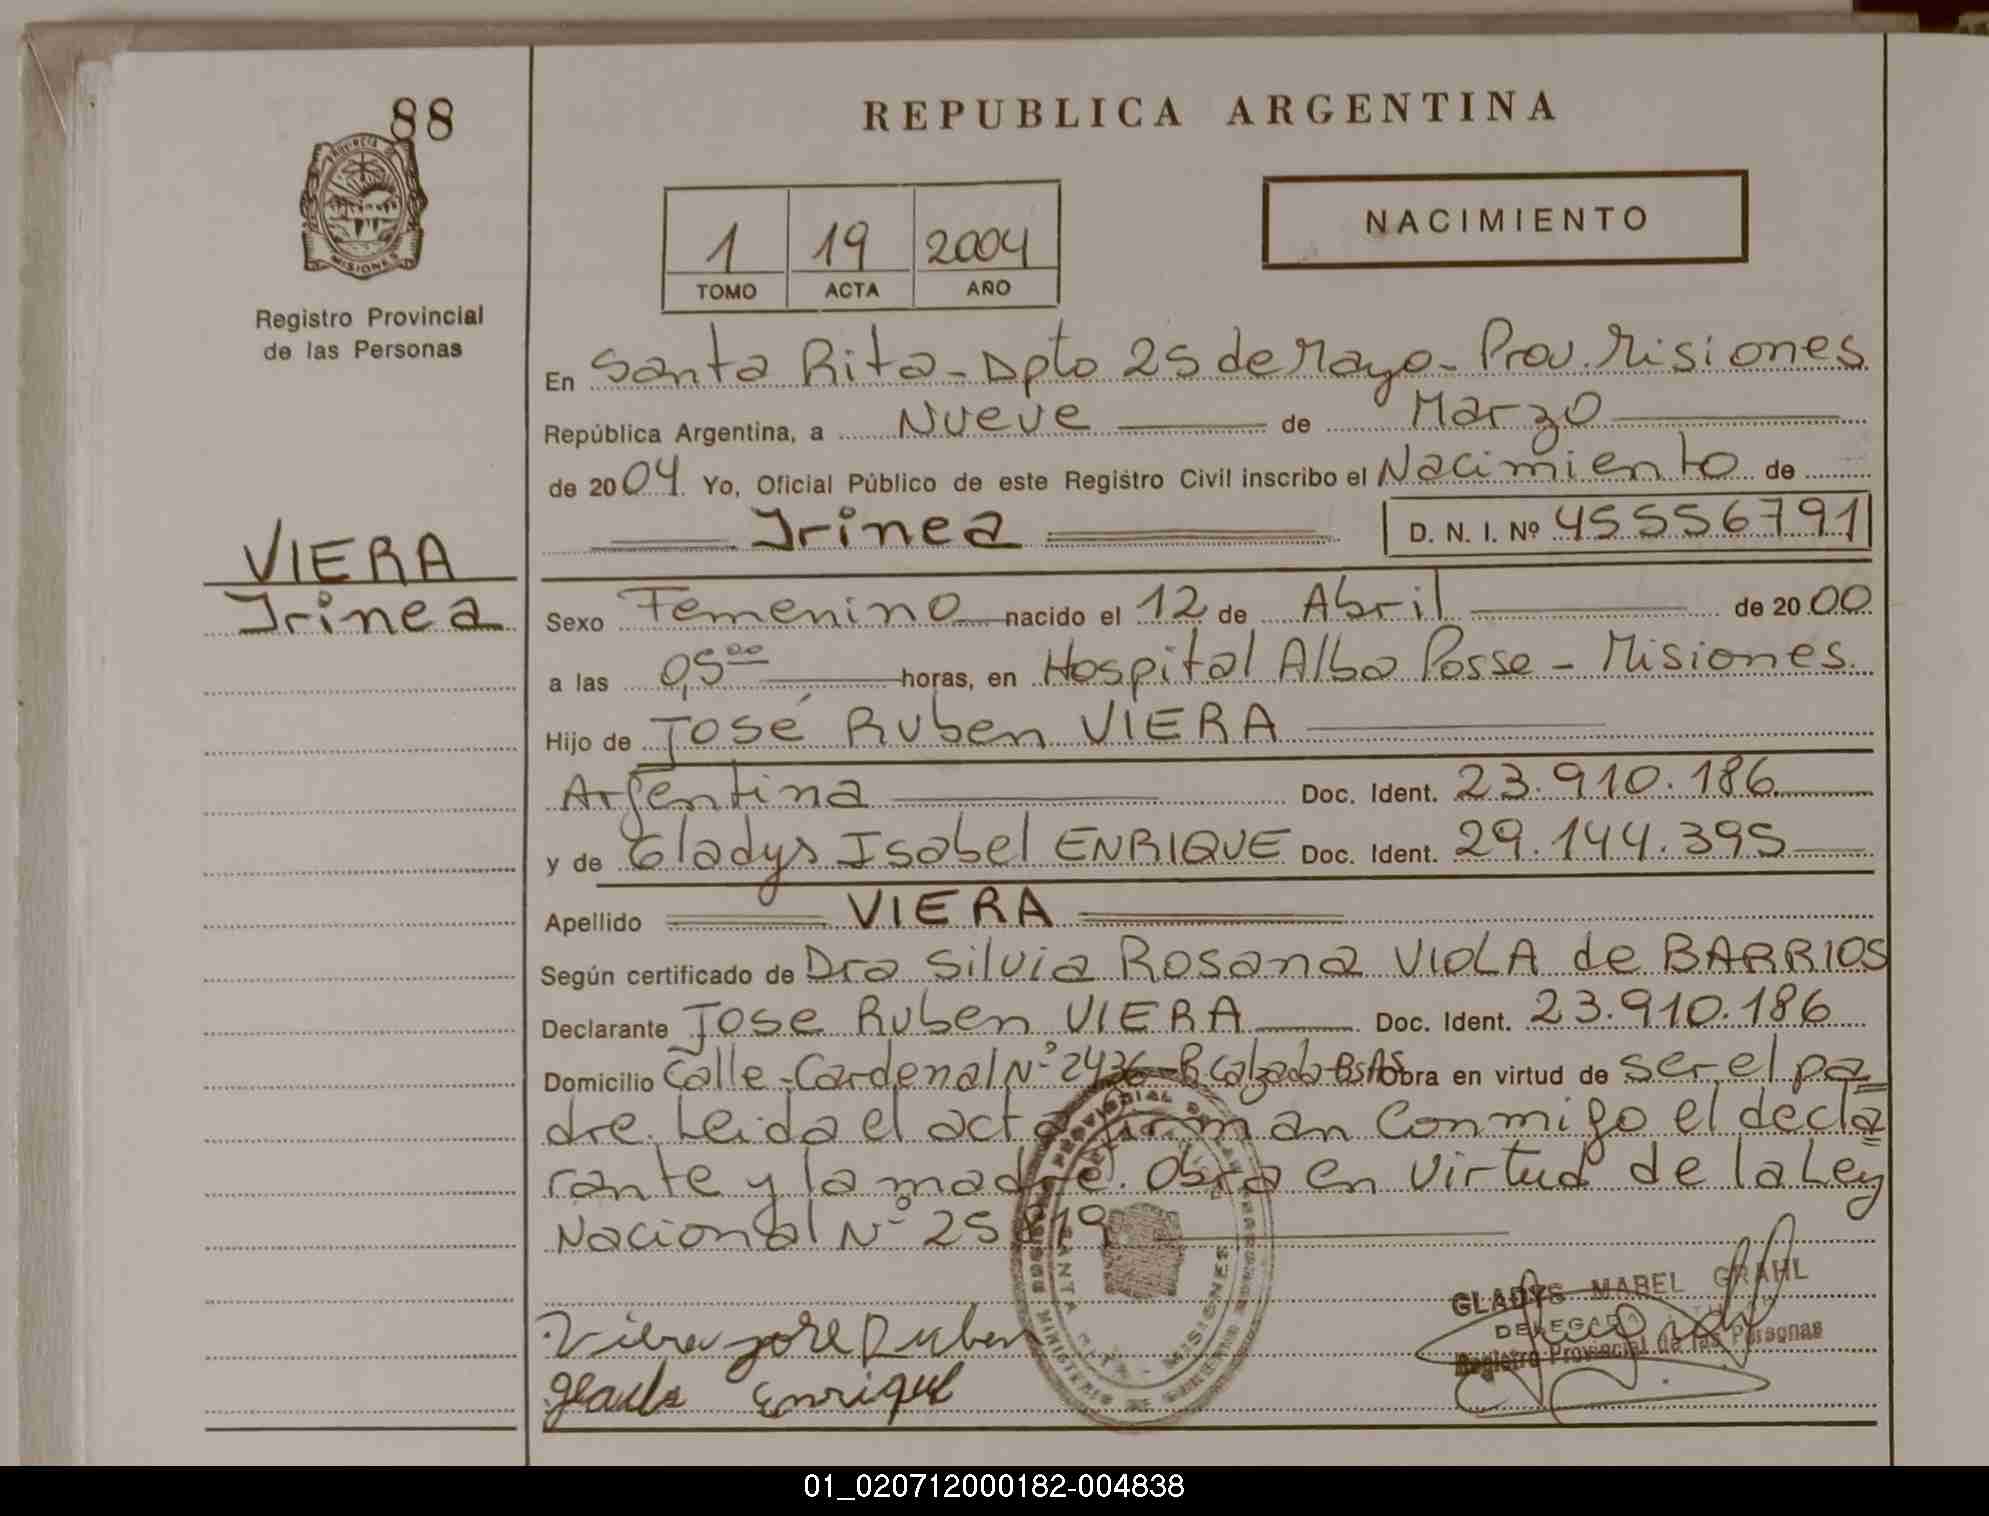 88
REPUBLICA ARGENTINA
PROVINCIA DE
MISIONES
Registro Provincial
de las Personas
1 19 2004
TOMO ACTA AÑO
NACIMIENTO
En Santa Rita - Dpto 25 de Mayo - Prov. Misiones
República Argentina, a Nueve de Marzo
de 2004. Yo, Oficial Público de este Registro Civil inscribo el Nacimiento de
Irinea D. N. I. Nº 45556791
VIERA
Irinea
Sexo Femenino nacido el 12 de Abril de 2000
a las 0,5 00 horas, en Hospital Alba Posse - Misiones.
Hijo de José Ruben VIERA
Argentina Doc. Ident. 23.910.186
y de Gladys Isabel ENRIQUE Doc. Ident. 29.144.395
Apellido VIERA
Según certificado de Dra Silvia Rosana VIOLA de BARRIOS
Declarante Jose Ruben VIERA Doc. Ident. 23.910.186
Domicilio Calle - Cardenal Nº 2436 - R. Calzada - BsAs Obra en virtud de ser el pa
dre. Leida el acta firman conmigo el decla
rante y la madre. Obra en virtud de la Ley
Nacional Nº 25819
Viera jose Ruben
Enrique
GLADYS MABEL GRAHL
DELEGADA
Registro Provincial de las Personas
SANTA RITA - MISIONES
01_020712000182-004838